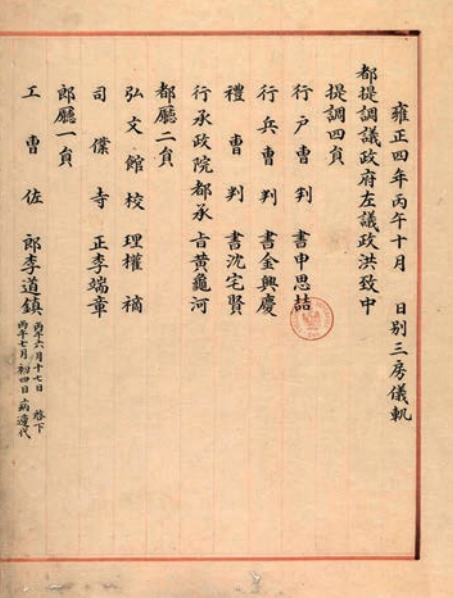 雍正四年丙午十月 日别三房儀軌
都提調議政府左議政洪致中
提調四負
行戶曹判書申思喆
行兵曹判書金興慶
禮曹判書沈宅賢
行承政院都承旨黄龜河
都廳二負
弘文館校理權𥛚
司僕寺正李端章
郎廳一負
工曹佐郎李道鎮 丙午六月十七日 啓下
丙午七月初四日病遞代